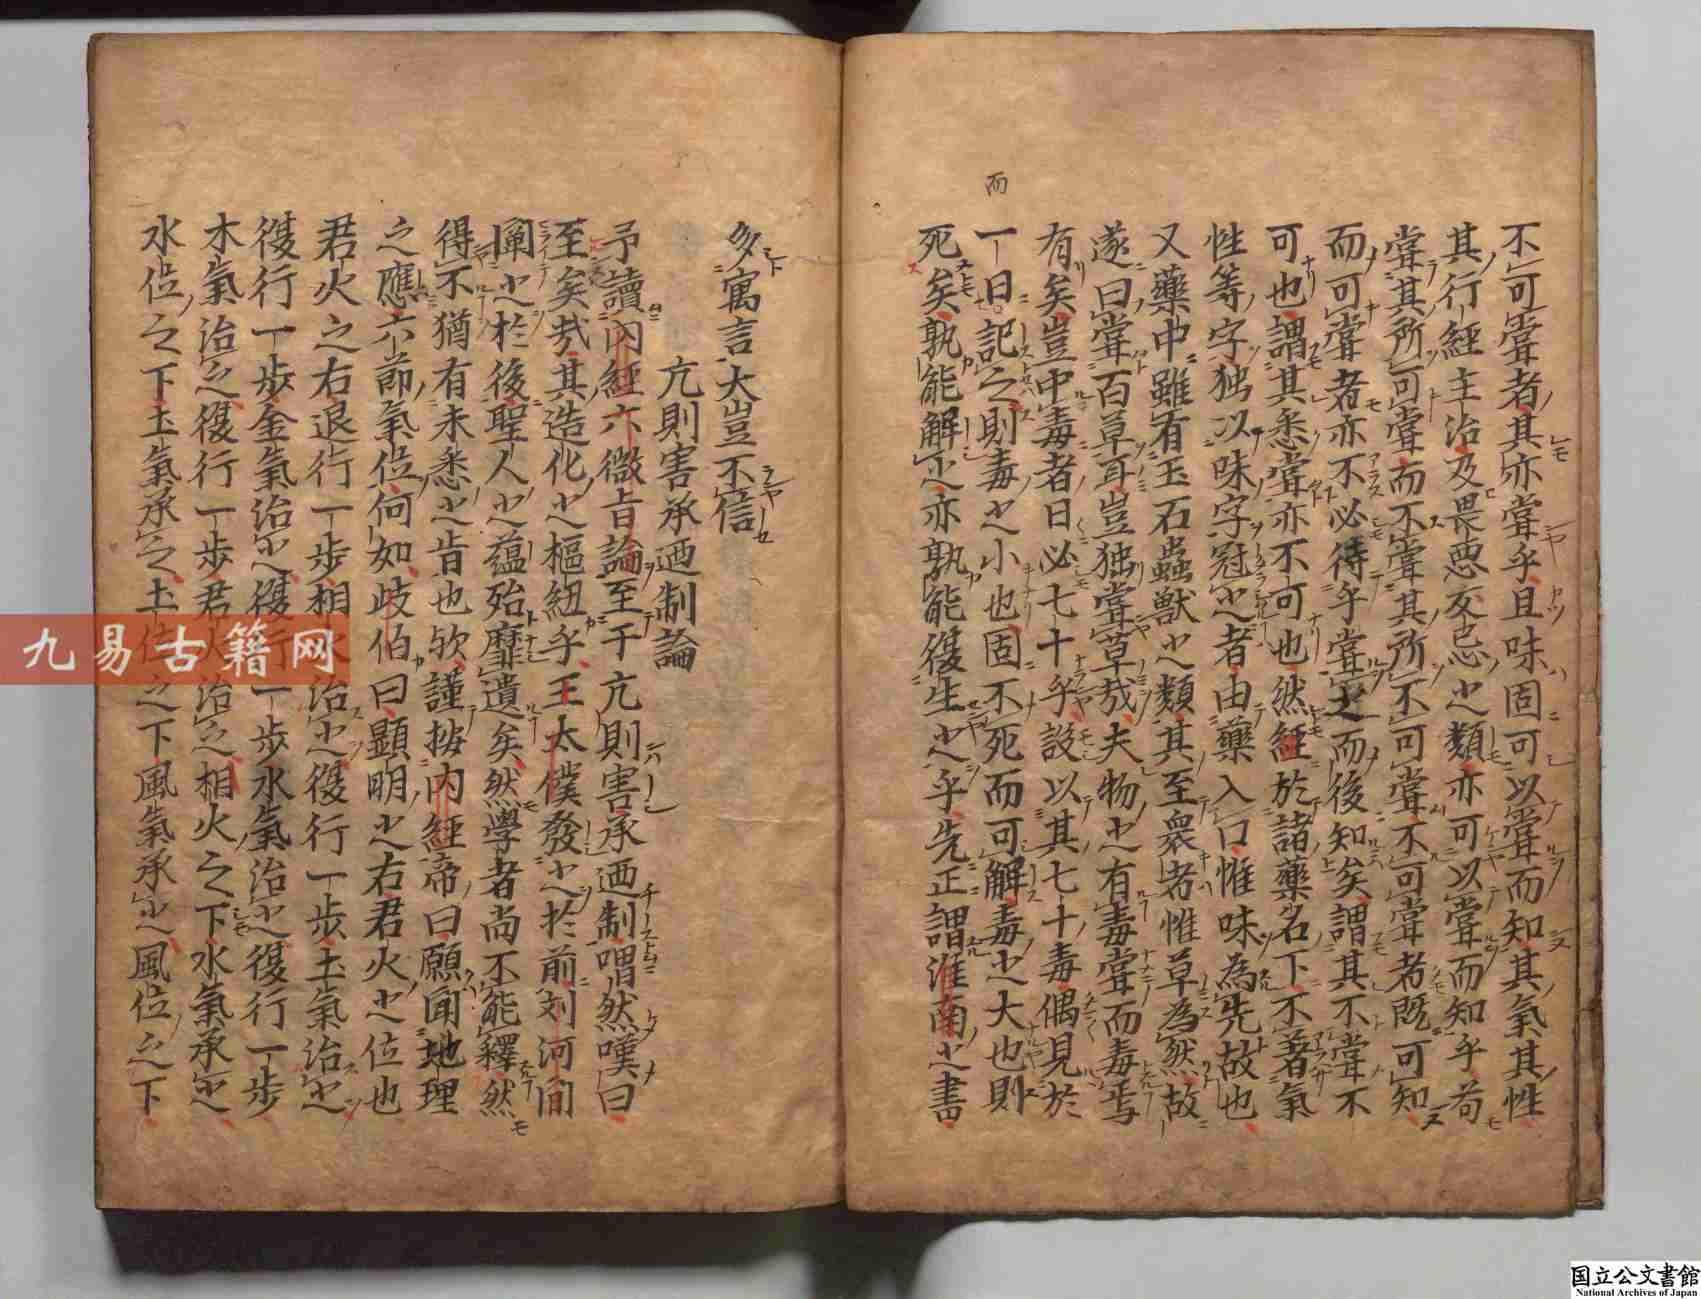 而
不可嘗者其亦嘗乎且味固可以嘗而知其氣其性
其行經主治及畏惡反忌之類亦可以嘗而知乎苟
嘗其所可嘗而不嘗其所不可嘗不可嘗者既可知
而可嘗者亦不必待乎嘗之而後知矣謂其不嘗不
可也謂其悉嘗亦不可也然經於諸藥名下不著氣
性等字独以味字冠之者由藥入口惟味為先故也
又藥中雖有玉石蟲獸之類其至衆者惟草為然故
遂曰嘗百草耳豈独嘗草哉夫物之有毒嘗而毒焉
有矣豈中毒者日必七十乎設以其七十毒偶見於
一日記之則毒之小也固不死而可解毒之大也則
死矣孰能解之亦孰能復生之乎先正謂淮南之書
多寓言夫豈不信
亢則害承廼制論
予讀內經六微旨論至于亢則害承廼制喟然嘆曰
至矣哉其造化之樞紐乎王太僕發之於前刘河間
闡之於後聖人之蘊殆靡遺矣然學者尚不能釋然
得不猶有未悉之旨也欤謹按內經帝曰願聞地理
之應六節氣位何如歧伯曰顯明之右君火之位也
君火之右退行一步相火治之復行一步土氣治之
復行一步金氣治之復行一步水氣治之復行一步
木氣治之復行一步君火治之相火之下水氣承之
水位之下土氣承之土位之下風氣承之風位之下
九易古籍网
国立公文書館
National Archives of Japan